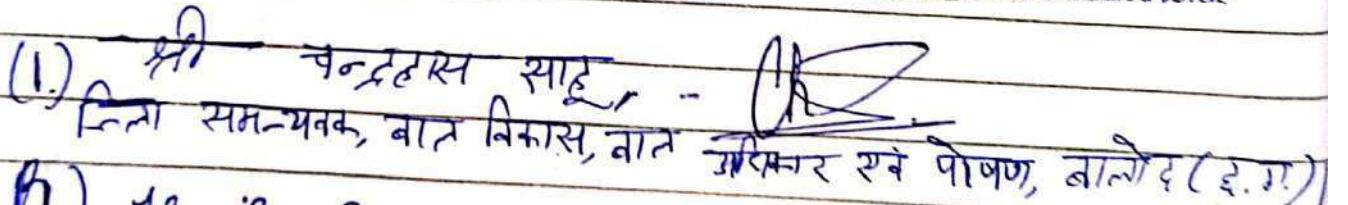 (1.) श्री चन्द्रहास साहू, -
जिला समन्यवक, बाल विकास, बाल अधिकार एवं पोषण, बालोद (छ.ग.)